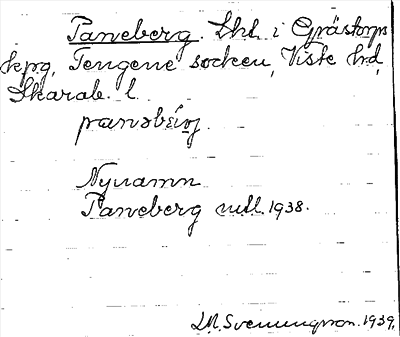 Paneberg. Lht. i Grästorps
kpg, Tengene socken, Viste hd,
Skarab. l.
panəbæ̀rj
Nynamn
Paneberg medd. 1938.
L.M. Svenungsson. 1939.